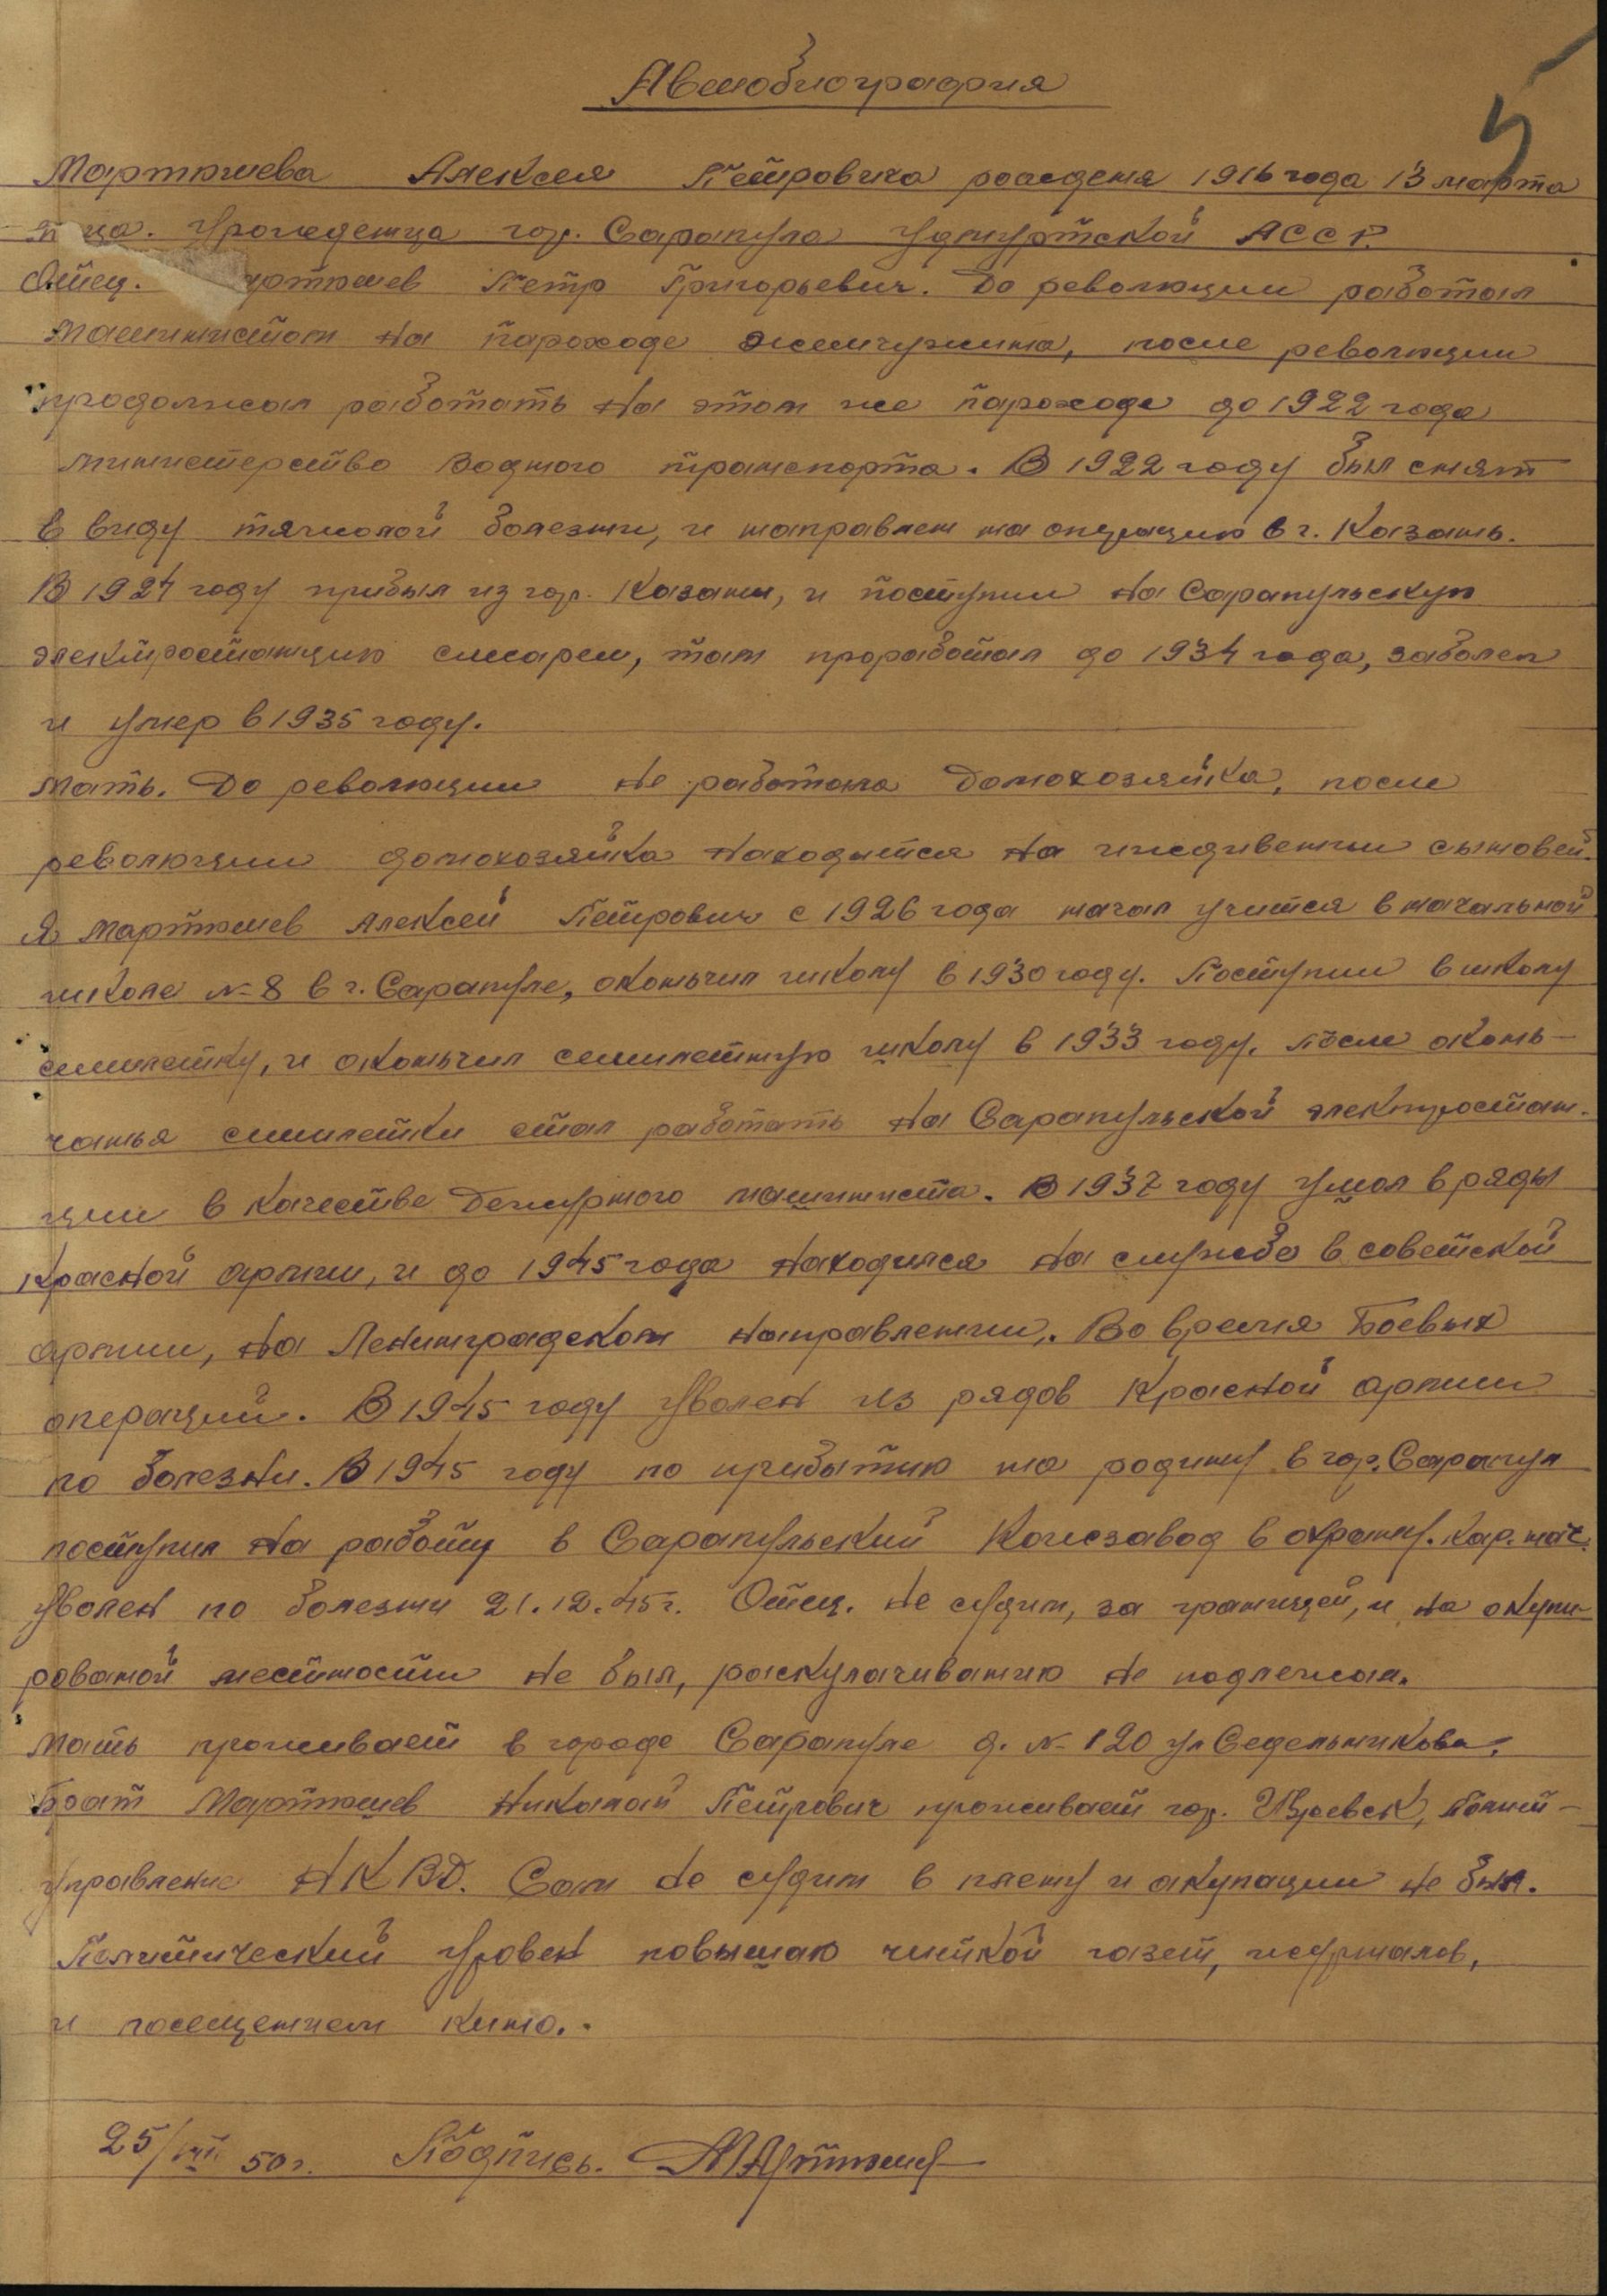 Автобиография
5
Мартюшева Алексея Петровича рождения 1916 года 13 марта
м-ца. Урожденца гор. Сарапула Удмуртской АССР.
Отец. артюшев Петр Григорьевич. До революции работал
машинистом на пароходе жемчужина, после революции
продолжал работать на этом же пароходе до 1922 года
министерство водного транспорта. В 1922 году был снят
в виду тяжолой болезни, и направлен на операцию в г. Казань.
В 1924 году прибыл из гор. Казани, и поступил на Сарапульскую
электростанцию слесарем, там проработал до 1934 года, заболел
и умер в 1935 году.
Мать. До революции не работала домохозяйка, после
революции домохозяйка находится на иждивении сыновей.
Я Мартюшев Алексей Петрович с 1926 года начал учится в начальной
школе № 8 в г. Сарапуле, окончил школу в 1930 году. Поступил в школу
семилетку, и окончил семилетнюю школу в 1933 году. После окон-
чанья семилетки стал работать на Сарапульской электростан-
ции в качестве дежурного машиниста. В 1937 году ушол в ряды
Красной армии, и до 1945 года находился на службе в советской
армии, на Ленинградском направлении,. Во время Боевых
операций. В 1945 году уволен из рядов Красной армии
по болезни. В 1945 году по прибытию на родину в гор. Сарапул
поступил на работу в Сарапульский Кожзавод в охрану. Кар. нач.
Уволен по болезни 21.12.45г. Отец. не судим, за границей, и на окупи-
рованой местности не был, раскулачиванию не подлежал.
Мать проживает в городе Сарапуле д. № 120 ул Седельникова.
Брат Мартюшев Николай Петрович проживает гор. Ижевск,
управление НКВД. Сам не судим в плену и окупации не был.
Политический уровен повышаю читкой газет, журналов,
и посещением кино.
25/VII 50г. Подпись. МАртюшев